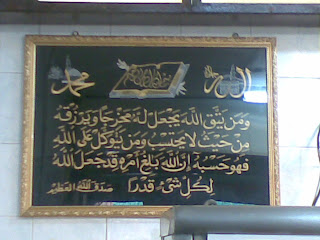 الله
محمد
وَمَن يَتَّقِ اللَّهَ يَجْعَل لَهُ مَخْرَجًا وَيَرْزُقْهُ
مِنْ حَيْثُ لَا يَحْتَسِبُ وَمَن يَتَوَكَّلْ عَلَى اللَّهِ
فَهُوَ حَسْبُهُ إِنَّ اللَّهَ بَالِغُ أَمْرِهِ قَدْ جَعَلَ اللَّهُ
لِكُلِّ شَيْءٍ قَدْرًا
صدق الله العظيم